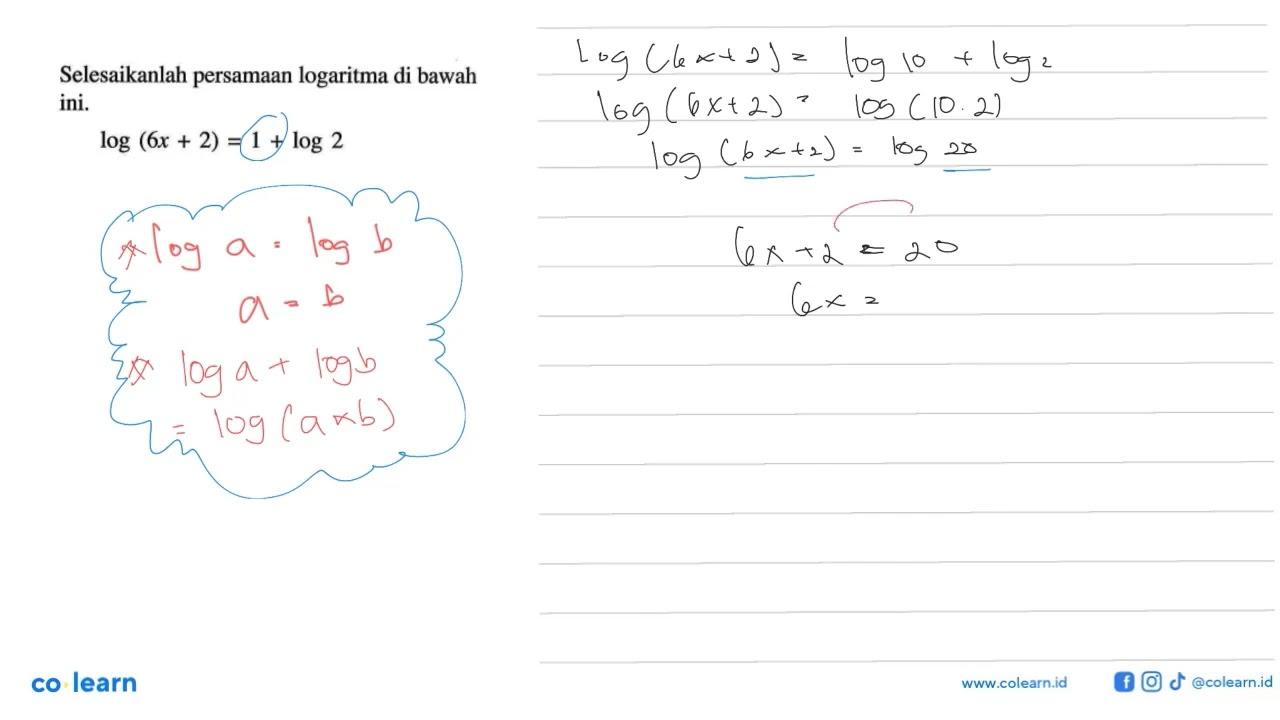 Selesaikanlah persamaan logaritma di bawah
ini.
log (6x + 2) = 1 + log 2
☆ log a = log b
a = b
☆ log a + log b
= log (a × b)
log (6x + 2) = log 10 + log 2
log (6x + 2) = log (10 . 2)
log (6x + 2) = log 20
6x + 2 = 20
6x =
co·learn
www.colearn.id
@colearn.id